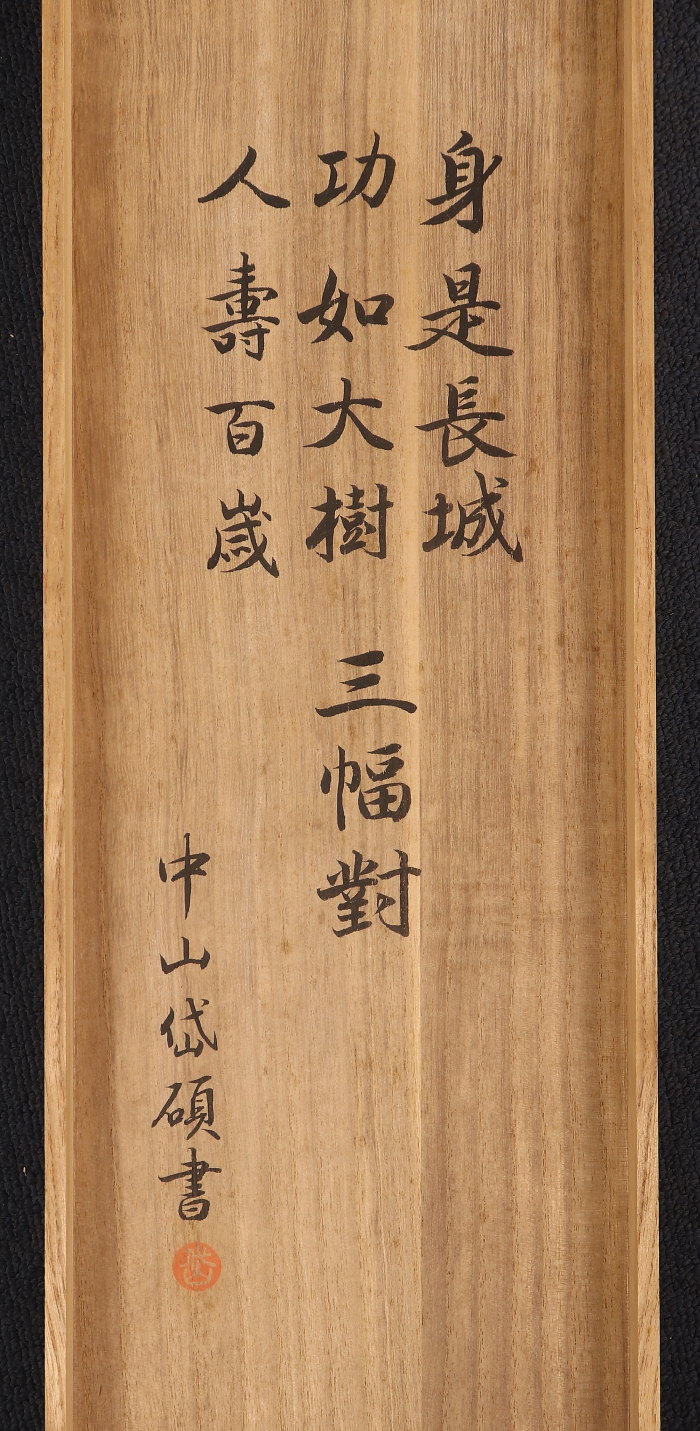 身是長城
功如大樹
人壽百歳
三幅對
中山岱碩書